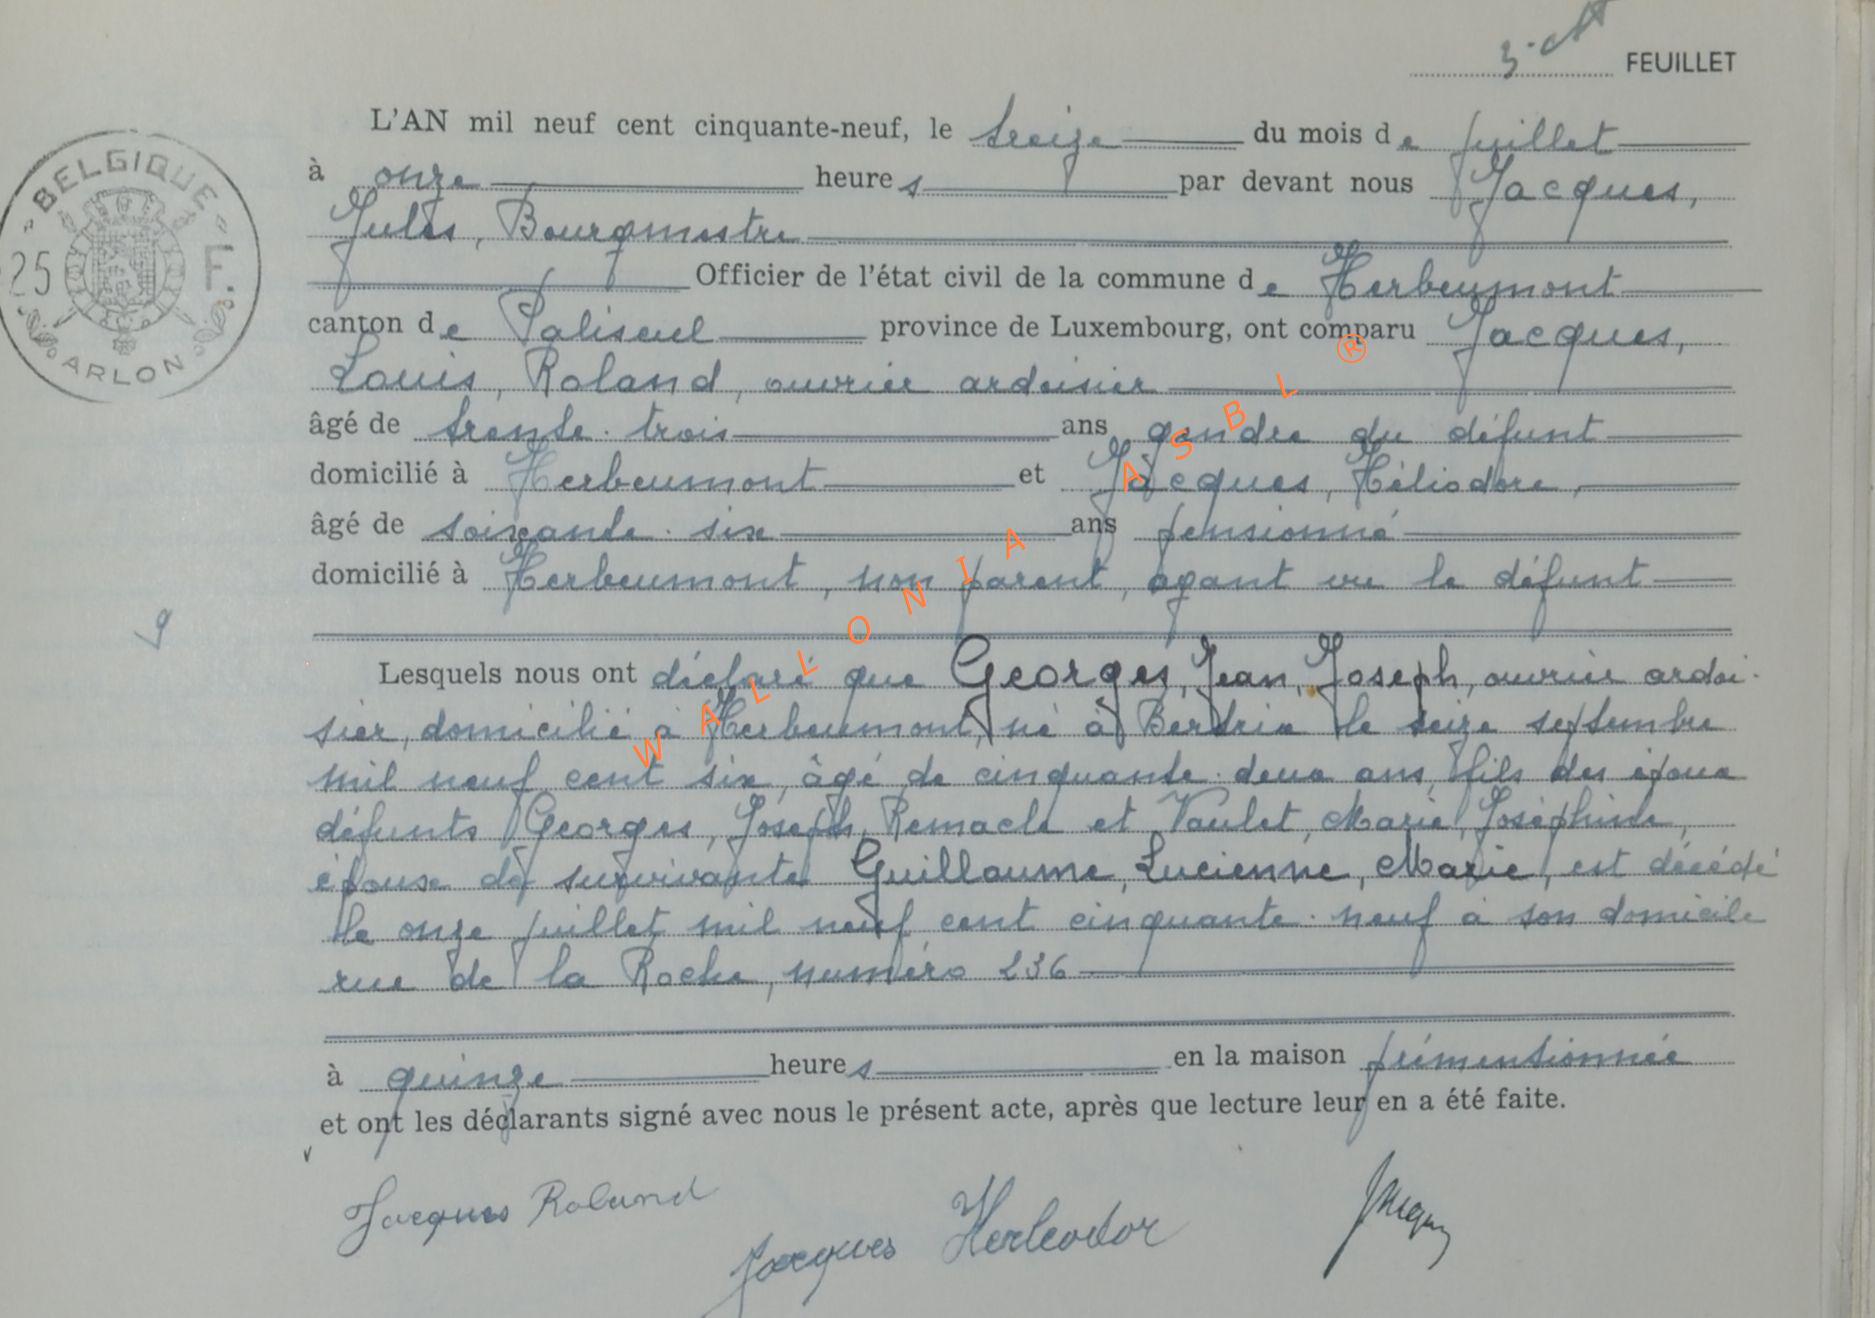 3
FEUILLET
L'AN mil neuf cent cinquante-neuf, le treize du mois de juillet
à onze heures par devant nous Jacques,
Jules, Bourgmestre
Officier de l'état civil de la commune de Herbeumont
canton de Paliseul province de Luxembourg, ont comparu Jacques,
Louis, Roland, ouvrier ardoisier
âgé de trente-trois ans gendre du défunt
domicilié à Herbeumont et Jacques, Héliodore,
âgé de soixante-six ans pensionné
domicilié à Herbeumont, non parent, ayant vu le défunt
9
Lesquels nous ont déclaré que Georges, Jean, Joseph, ouvrier ardoi-
sier, domicilié à Herbeumont, né à Bertrix le seize septembre
mil neuf cent six, âgé de cinquante-deux ans, fils des époux
défunts Georges, Joseph, Remacle et Vaulet, Marie, Joséphine,
épouse de survivante Guillaume, Lucienne, Marie, est décédé
le onze juillet mil neuf cent cinquante-neuf à son domicile
rue de la Roche, numéro 236
à quinze heures en la maison prémentionnée
et ont les déclarants signé avec nous le présent acte, après que lecture leur en a été faite.
Jacques Roland
Jacques Herleodor
Jacques
BELGIQUE
25 F.
ARLON
WALLONIA ASBL ®